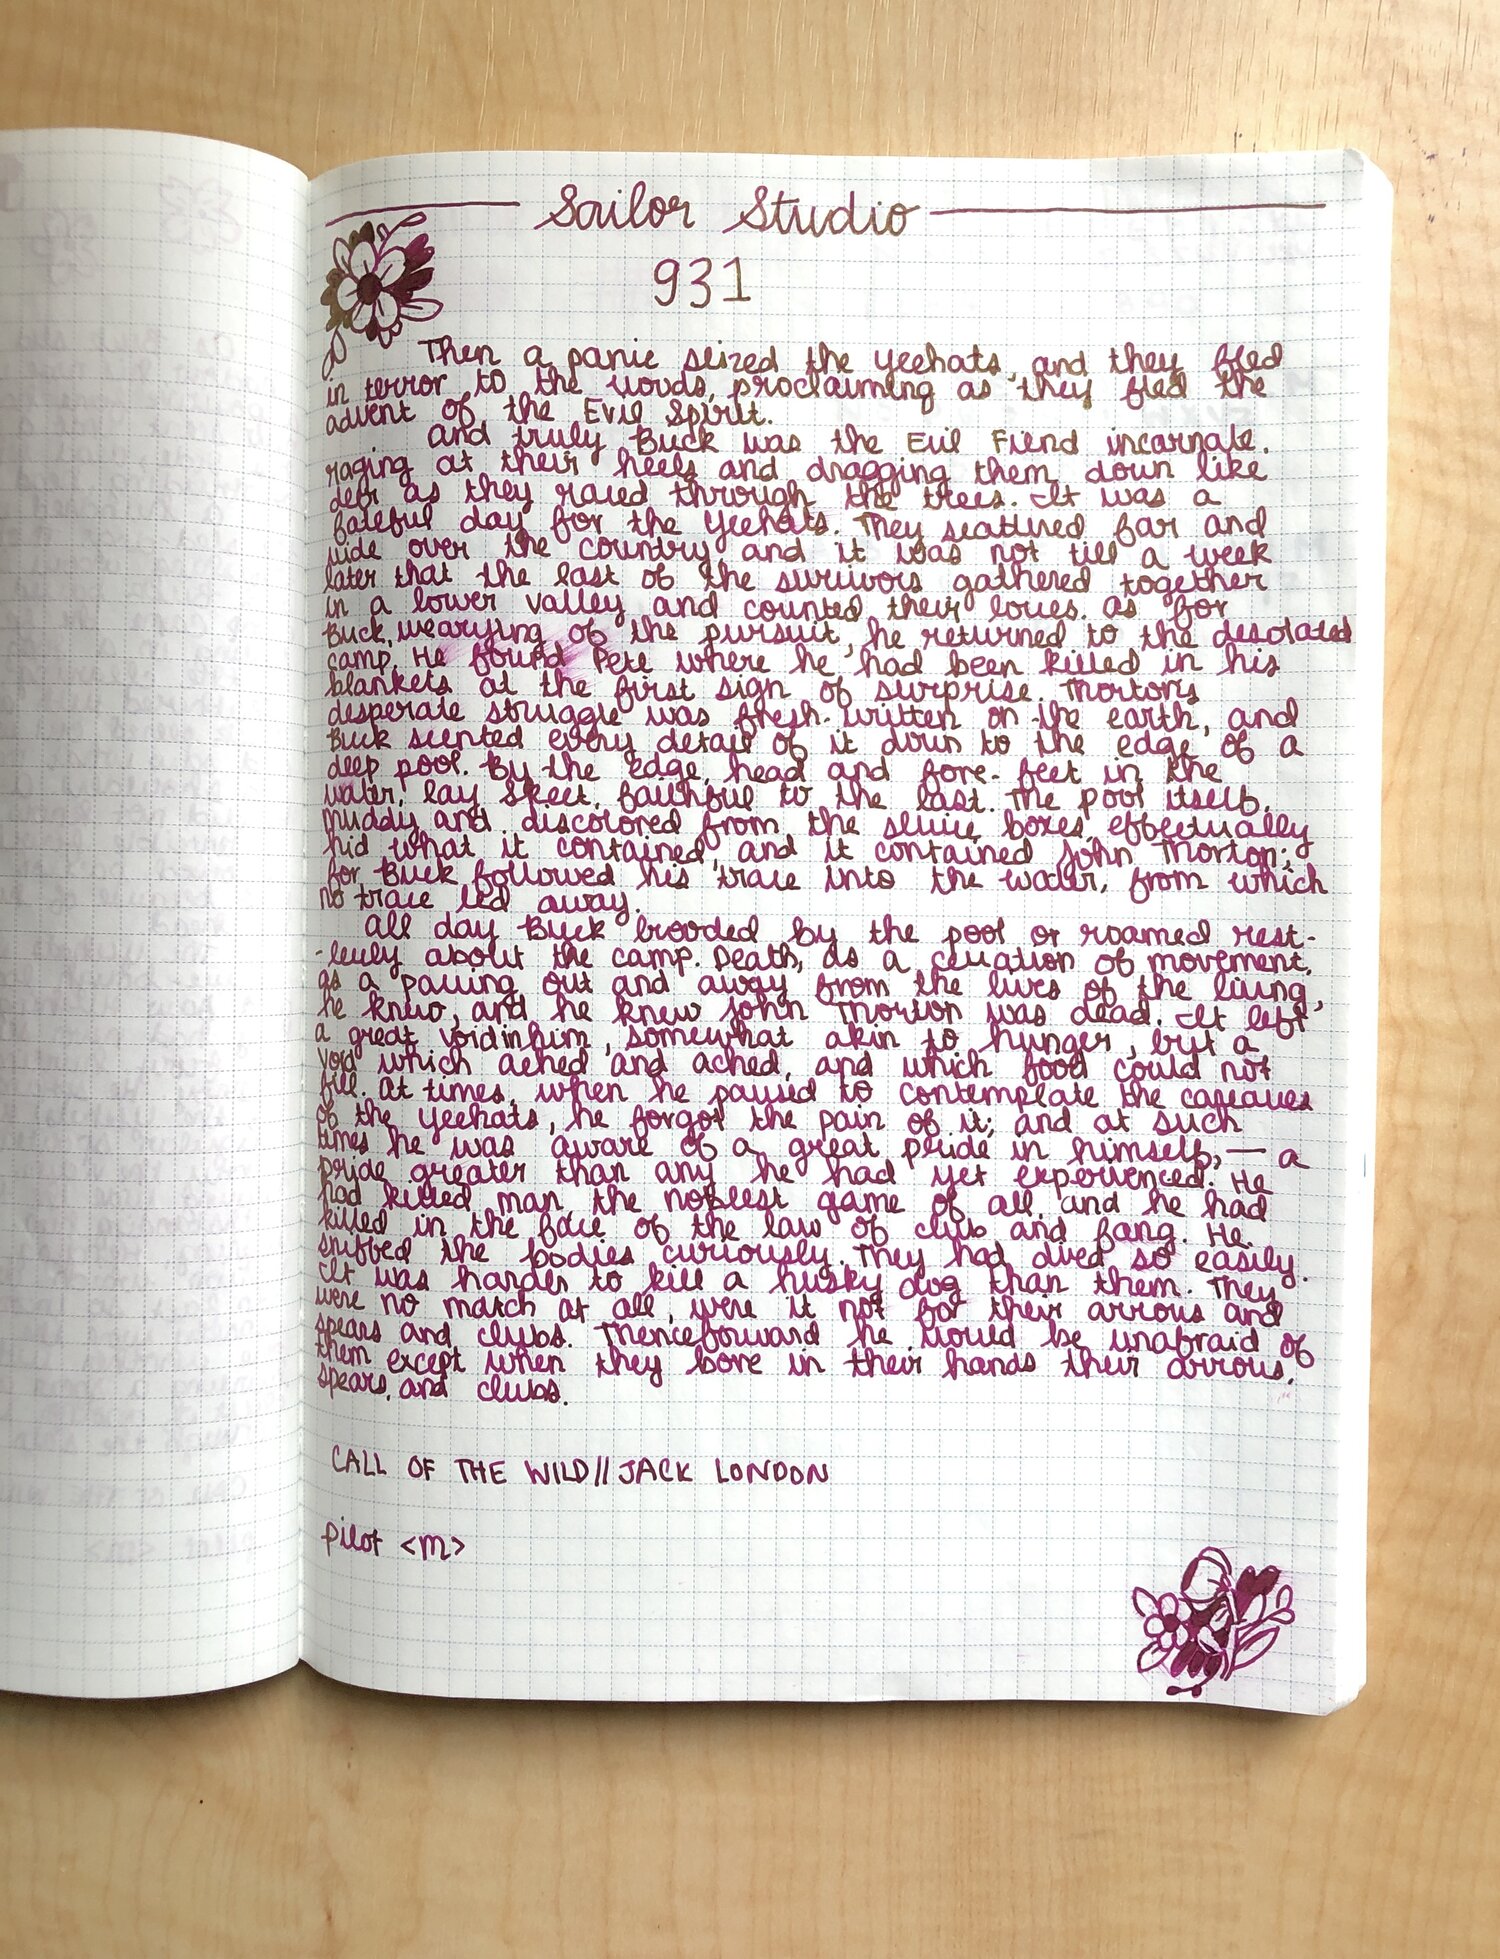 Sailor Studio
931
Then a panic seized the Yeehats, and they fled
in terror to the woods, proclaiming as they fled the
advent of the Evil Spirit.
and truly Buck was the Evil Fiend incarnate.
raging at their heels and dragging them down like
deer as they raced through the trees. It was a
fateful day for the Yeehats. They scattered far and
wide over the country and it was not till a week
later that the last of the survivors gathered together
in a lower valley and counted their loses. as for
Buck, wearying of the pursuit, he returned to the desolated
camp. He found Pete where he had been killed in his
blankets at the first sign of surprise. Thorton's
desperate struggle was fresh-written on the earth, and
Buck scented every detail of it down to the edge of a
deep pool. By the edge, head and fore-feet in the
water, lay Skeet, faithful to the last. The pool itself,
muddy and discolored from the sluice boxes, effectually
hid what it contained, and it contained John Thorton;
for Buck followed his trace into the water, from which
no trace led away.
all day Buck brooded by the pool or roamed rest-
-lessly about the camp. Death, as a cessation of movement,
as a passing out and away from the lives of the living,
he knew, and he knew John Thorton was dead. It left
a great void in him, somewhat akin to hunger, but a
void which ached and ached, and which food could not
fill. at times, when he paused to contemplate the carcasses
of the Yeehats, he forgot the pain of it; and at such
times he was aware of a great pride in himself, — a
pride greater than any he had yet experienced. He
had killed man, the noblest game of all, and he had
killed in the face of the law of club and fang. He
sniffed the bodies curiously. They had died so easily.
It was harder to kill a husky dog than them. They
were no match at all, were it not for their arrows and
spears and clubs. Thenceforward he would be unafraid of
them except when they bore in their hands their arrows,
spears, and clubs.
CALL OF THE WILD//JACK LONDON
pilot <m>